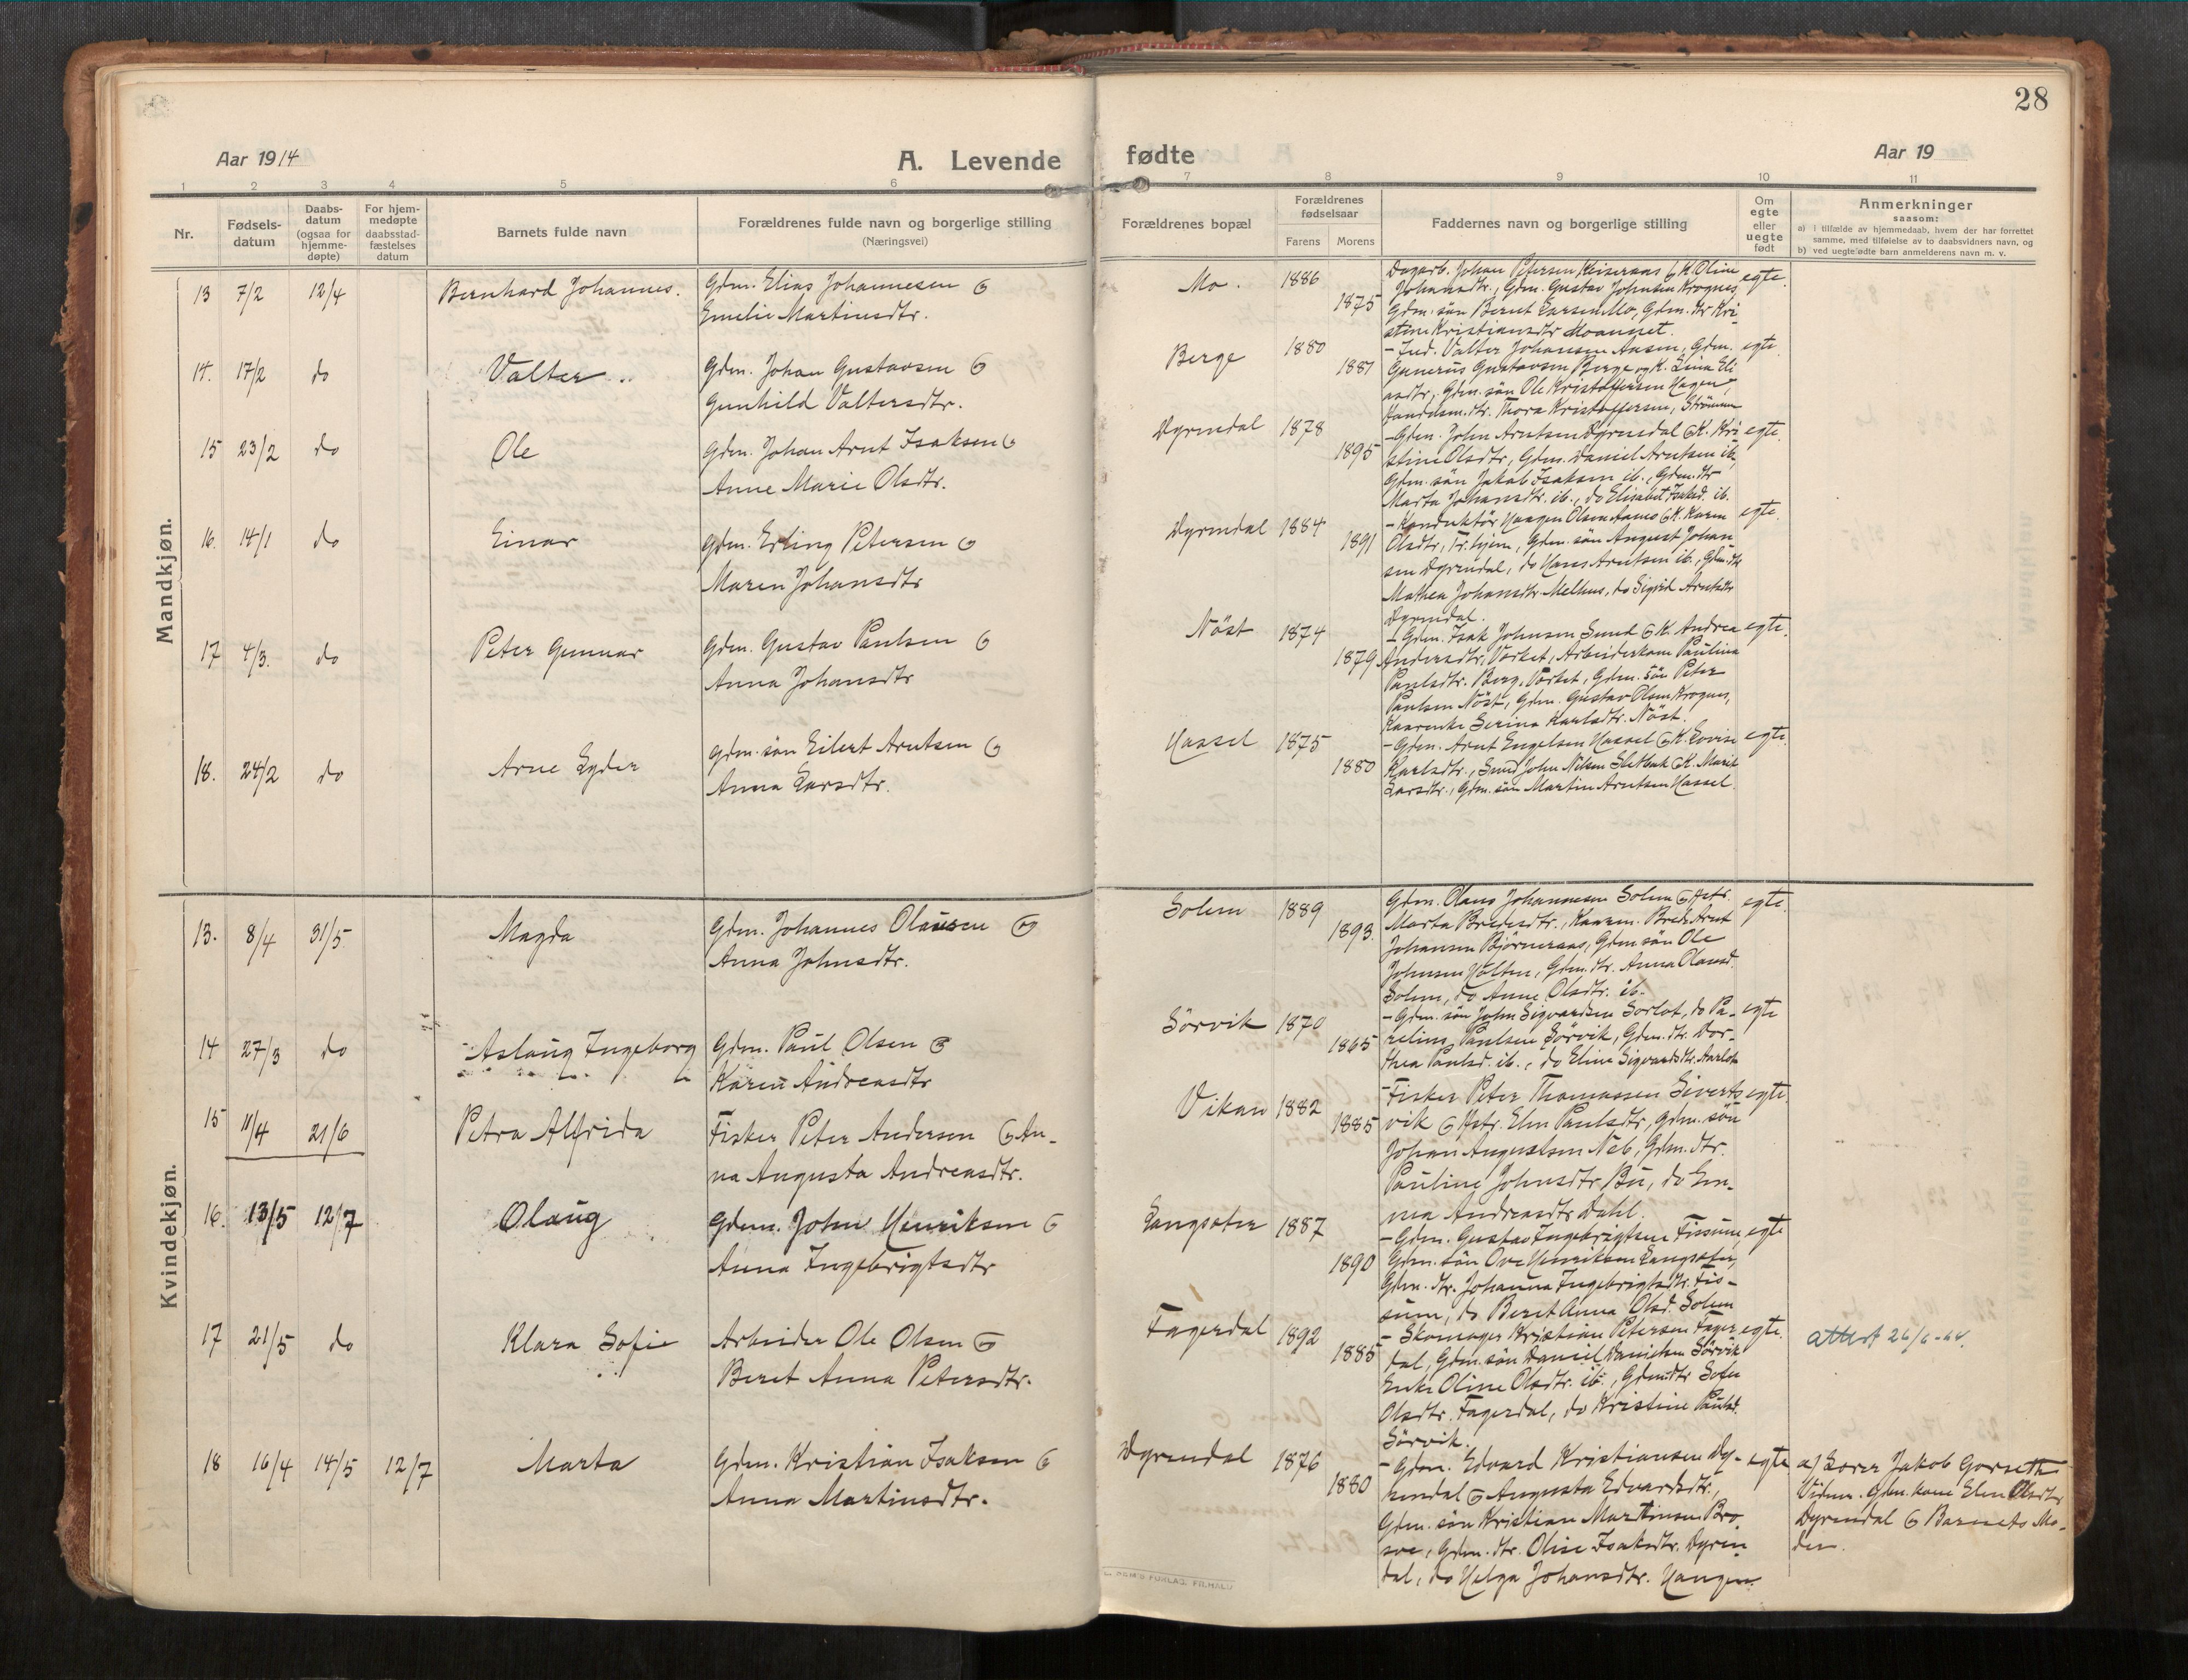 28
Aar 1914
A. Levende
fødte
Aar 19
1 2 3 4 5 6
7 8 9 10 11
Nr.
Fødsels-
datum
Daabs-
datum
(ogsaa for
hjemme-
døpte)
For hjem-
medøpte
daabsstad-
fæstelses
datum
Barnets fulde navn
Forældrenes fulde navn og borgerlige stilling
(Næringsvei)
Forældrenes bopæl
Forældrenes
fødselsaar
Farens Morens
Faddernes navn og borgerlige stilling
Om
egte
eller
uegte
født
Anmerkninger
saasom:
a) i tilfælde av hjemmedaab, hvem der har forrettet
samme, med tilføielse av to daabsvidners navn, og
b) ved uegte fødte barn anmelderens navn m. v.
Mandkjøn.
13 7/2 12/4 Bernhard Johannes. Gdm. Elias Johannesen G
Emelie Martinsdtr.
Mo. 1886 1875
Dagarb. Johan Petersen Keiseraas G K. Oline
Johansdtr., Gdm. Gustav Johnsen Krognes
Gdm. søn Bernt Larsen Mo, Gdm. dtr Kri-
stine Kristiansdtr Moanset.
egte.
14. 17/2 do Valter .. Gdm. Johan Gustavsen G
Gunhild Valtersdtr.
Berge 1880 1887
- Ind. Valter Johansen Aasen, Gdm.
Gunerius Gustavsen Berge og K. Lina Eli
asdtr, Gdm. søn Ole Kristoffersen Hagen,
Handelsm. dtr. Thora Kristoffersen, Strømmen
egte.
15 23/2 do Ole Gdm. Johan Arnt Isaksen G
Anne Marie Olsdtr.
Dyrendal 1878 1895
- Gdm. John Arntsen Dyrendal G K. Kri-
stine Olsdtr, Gdm. Daniel Arntsen ib,
Gdm. søn Jakob Isaksen ib., Gdm. dtr
Marta Johansdtr. ib., do Elisabet Isaksd. ib.
egte.
16. 14/1 do Einar Gdm. Erling Petersen G
Maren Johansdtr
Dyrendal 1884 1891
- Konduktør Haagen Olsen Aames G K. Karen
Olsdtr, Tr.hjem, Gdm. søn August Johan
sen Dyrendal, do Hans Arntsen ib., Gdm. dtr
Mathea Johansdtr. Melhus, do Sigrid Arntsdtr
Dyrendal.
egte.
17 4/3. do Peter Gunnar Gdm. Gustav Paulsen G
Anna Johansdtr
Nöst 1874 1879
- Gdm. Isak Johnsen Sund G K. Andrea
Andersdtr, Vorket, Arbeiderkone Paulina
Paulsdtr. Berg, Vorket, Gdm. søn Peter
Paulsen Nöst, Gdm. Gustav Olsen Krognes,
Kaarenke Serina Karlsdtr. Nöst.
egte.
18. 24/2 do Arne Eyder Gdm. søn Eilert Arntsen G
Anna Larsdtr.
Hassel 1875 1880
- Gdm. Arnt Engelsen Hassel G K. Lovise
Karlsdtr., Smed John Nilsen Sletbak G K. Marit
Larsdtr., Gdm. søn Martin Arntsen Hassel
egte.
Kvindekjøn.
13. 8/4 31/5 Magda Gdm. Johannes Olausen G
Anna Johnsdtr.
Solem 1889 1893.
Gdm. Olaus Johannesen Solem G Hstr.
Marta Bredesdtr., Kaarem. Brede Arnt
Johansen Björneraas, Gdm søn Ole
Johnsen Holten, Gdm. dtr. Anna Olausd.
Solem, do Anne Olsdtr. ib.
egte.
14 27/3 do Aslaug Ingeborg Gdm. Paul Olsen G
Karen Andreasdtr
Sörvik 1870 1865
- Gdm. søn John Sigvardsen Sorlot, do Pa-
relius Paulsen Sörvik, Gdm. dtr. Dor-
thea Paulsd. ib., do Eline Sigvardsdtr. Aarlot
egte
15 11/4 21/6 Petra Alfrida Fisker Peter Andersen G An-
na Augusta Andreasdtr.
Vikan 1882 1885
- Fisker Peter Thomassen Siverts
vik G Hstr. Elen Paulsdtr, Gdm. søn
Johan Augustsen Neb, Gdm. dtr.
Pauline Johnsdtr, Bu, do Em-
ma Andreasdtr Dahl.
egte.
16. 13/5 12/7 Olaug Gdm. John Henriksen G
Anna Ingebrigtsdtr
Langsæter 1887 1890
- Gdm. Gustav Ingebrigtsen Fissum,
Gdm. søn Ove Henriksen Langsæter,
Gdm. dtr. Johanna Ingebrigtsdtr. Fis-
sum, do Beret Anna Olsd. Solem
egte
17 21/5 do Klara Sofie Arbeider Ole Olsen G
Beret Anna Petersdtr.
Fagerdal 1892 1885
- Skomager Kristian Petersen Fager
dal, Gdm. søn Daniel Danielsen Sörvik
Enke Oline Olsdtr. ib., Gdm dtr Sofie
Olsdtr. Fagerdal, do Kristine Paulsd.
Sörvik.
egte.
attest 26/6-64.
18 16/4 14/5 12/7 Marta Gdm. Kristian Isaksen G
Anna Martinsdtr.
Dyrendal 1876 1880
- Gdm. Edvard Kristiansen Dy-
rendal G Augusta Edvardsdtr.,
Gdm. søn Kristian Martinsen Bro
søe, Gdm. dtr. Olise Isaksdtr. Dyren
dal, do Helga Johansdtr. Haugen.
egte
a) Lærer Jakob Gorseth
Vidner. Gdm. kone Elen Olsdtr
Dyrendal G Barnets Mo-
der.